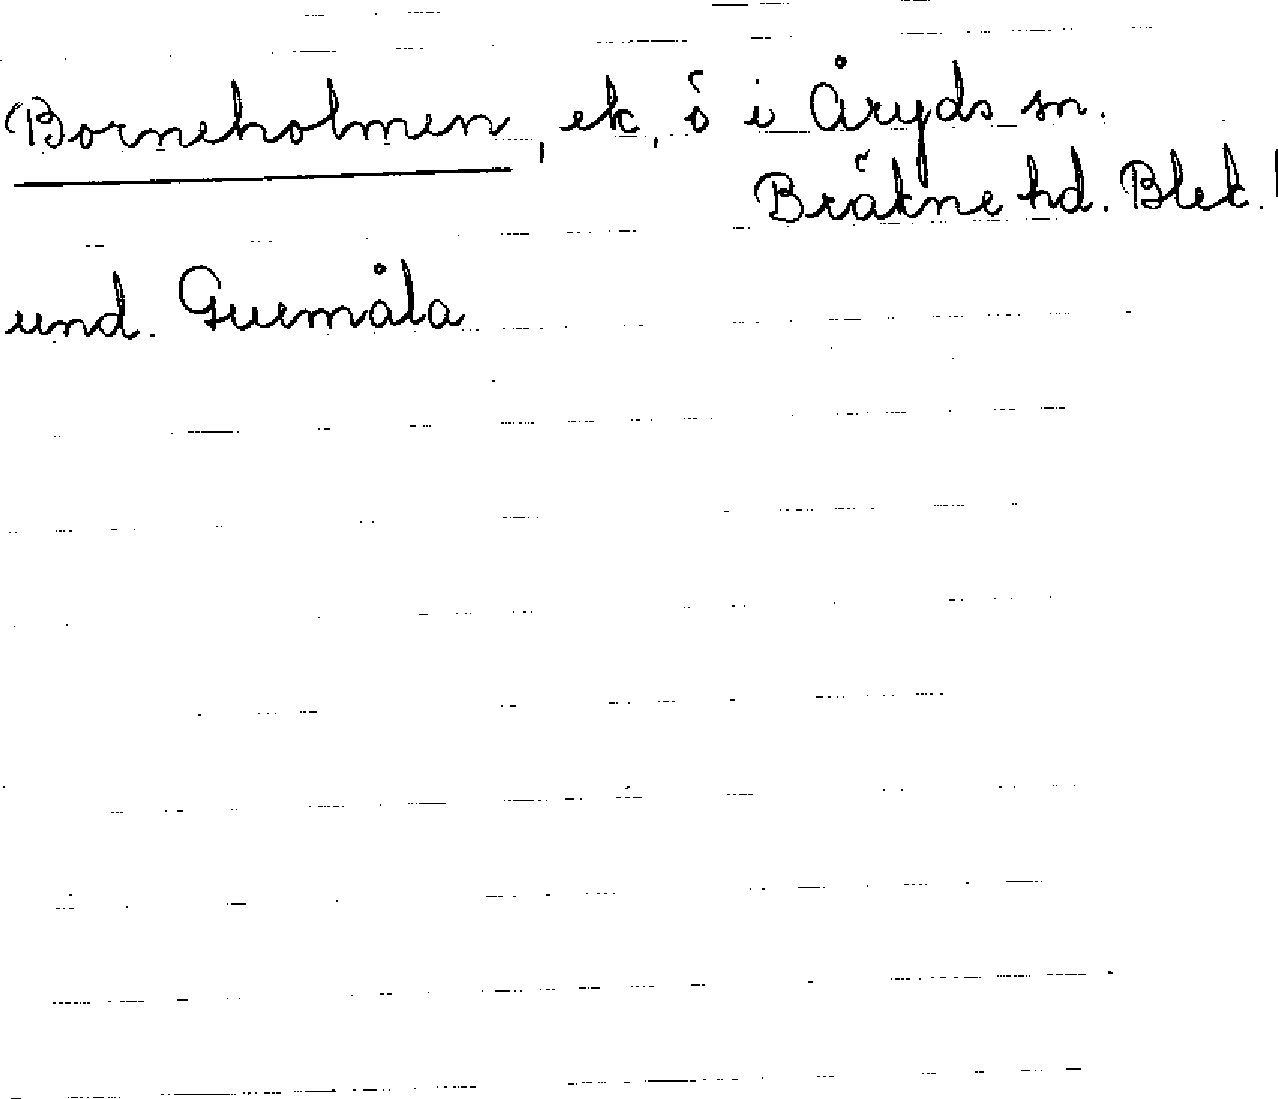 Borneholmen, ek, ö i Åryds sn.
Bräkne hd. Blek.
und. Guemåla